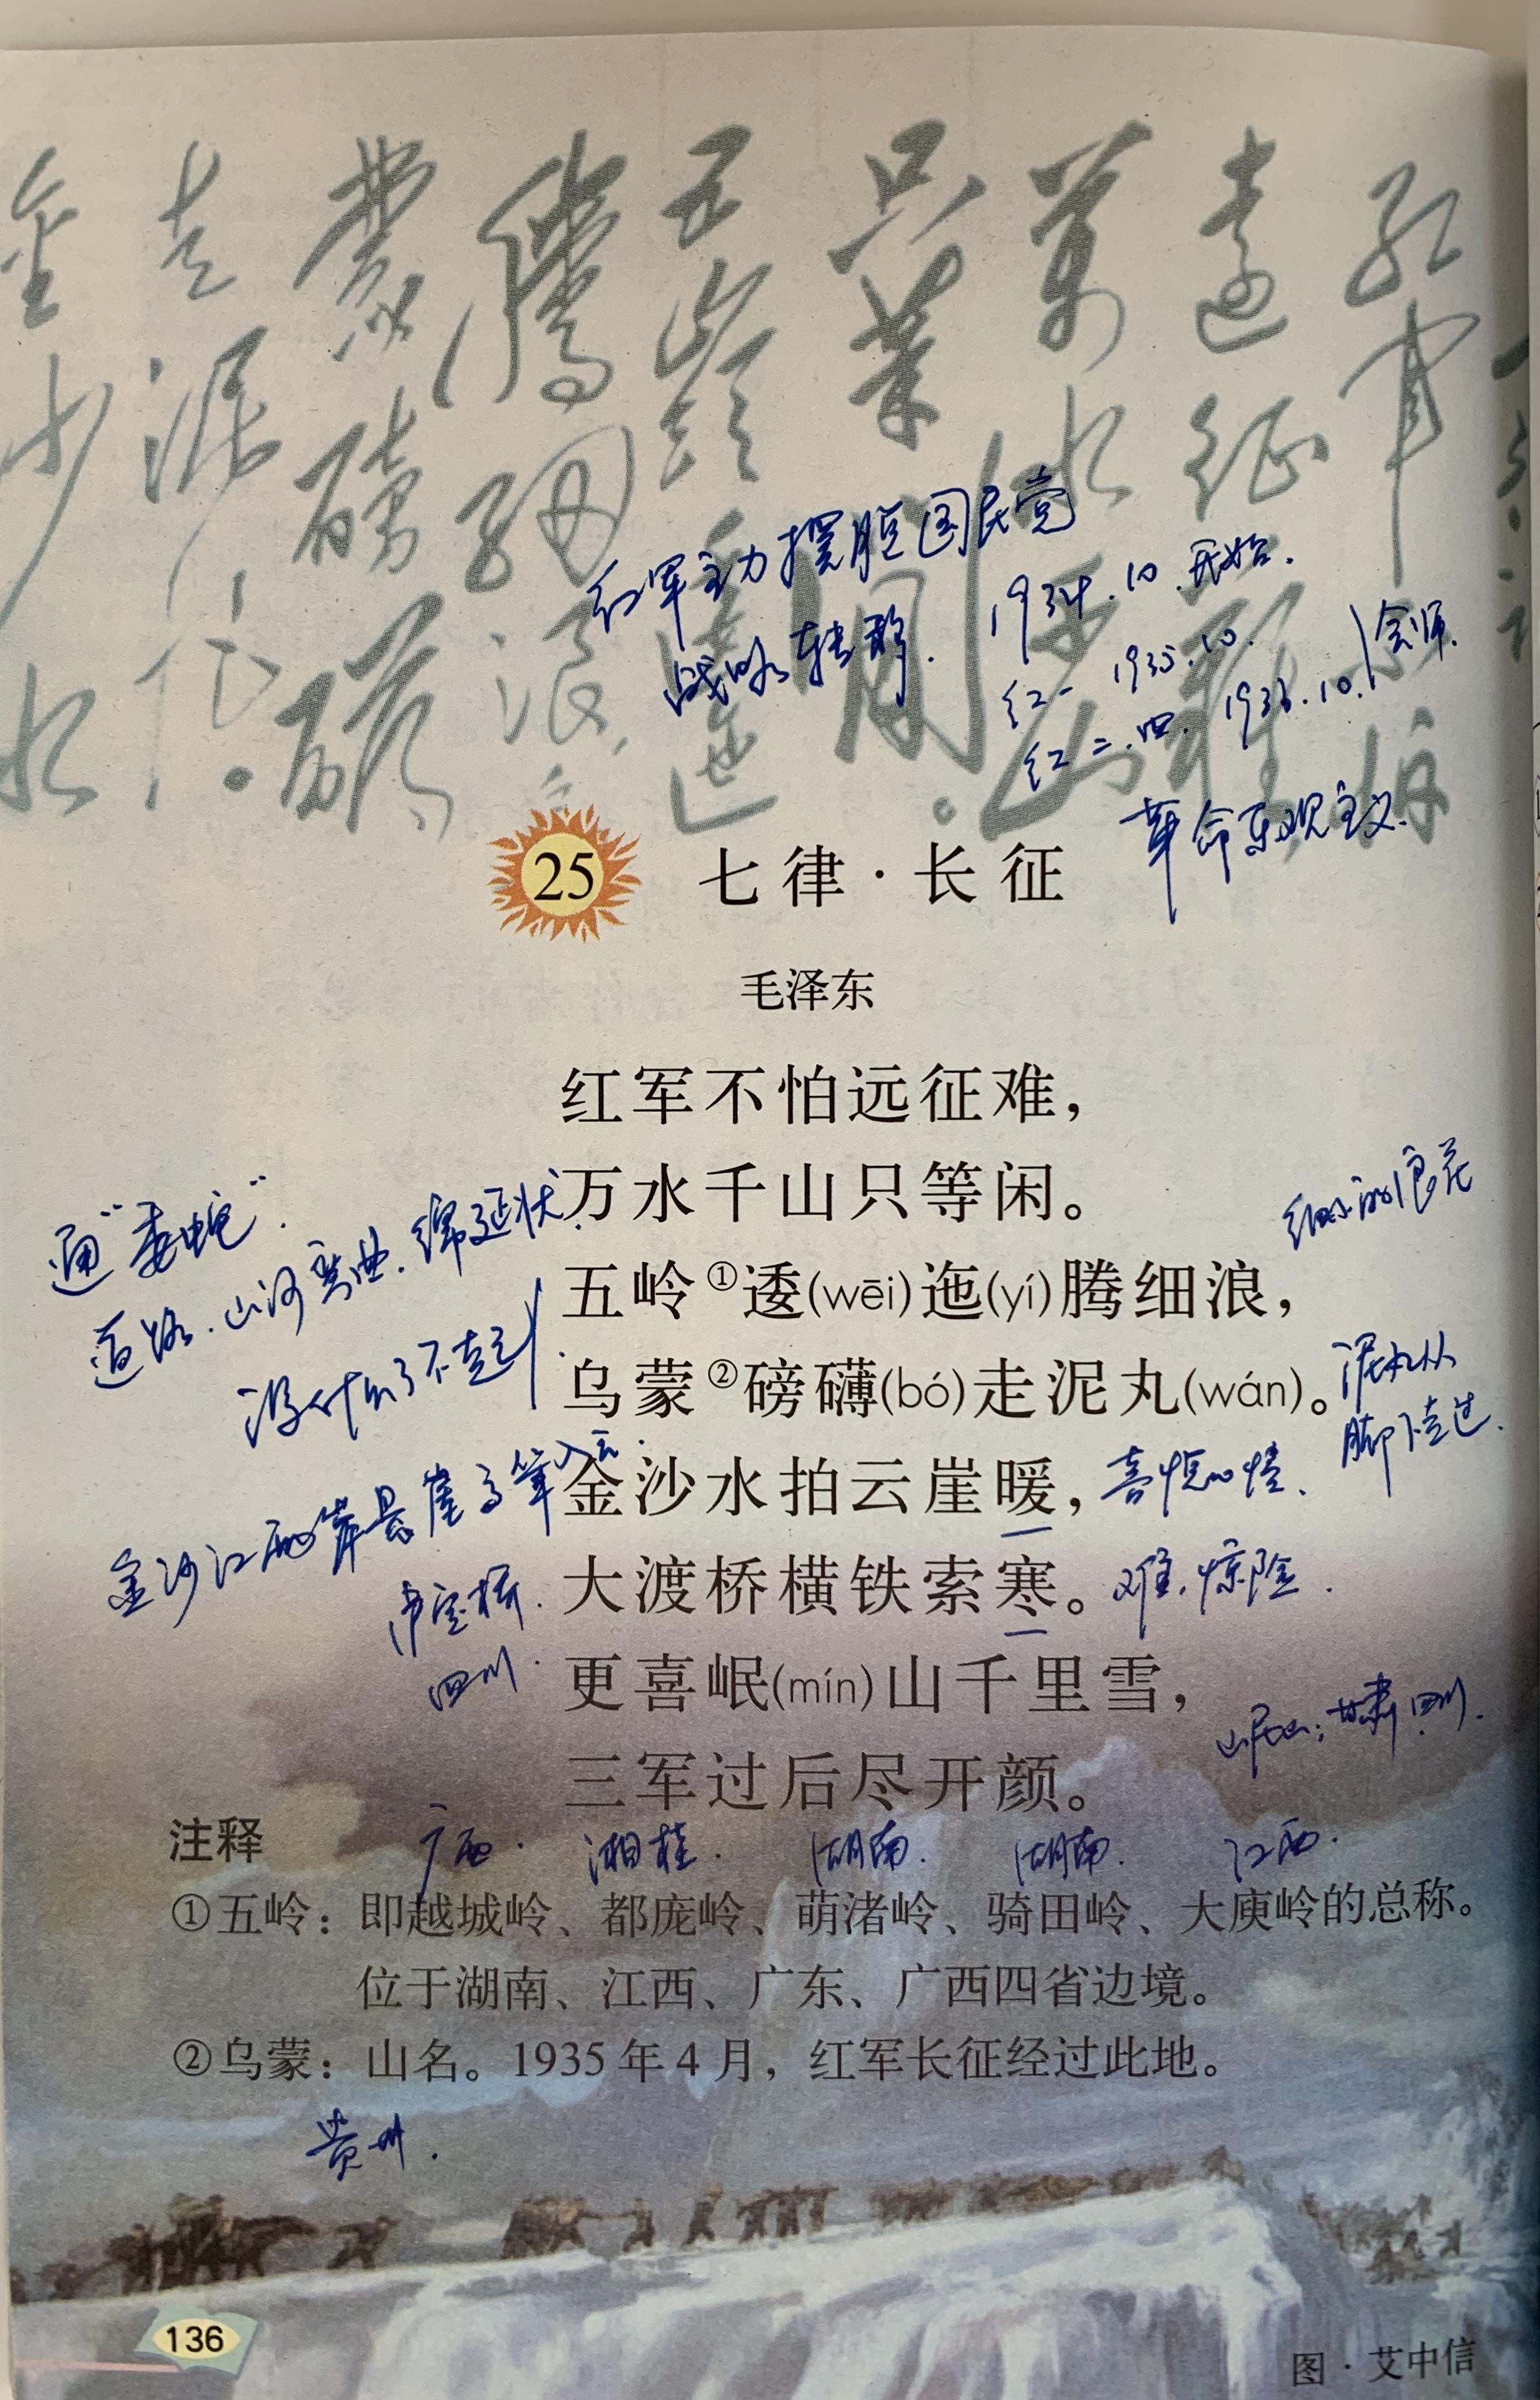 红军不怕
远征难
万水千山
只等闲。
五岭逶迤
腾细浪
蒙磅礴
走泥丸。
金沙水
红军主力摆脱国民党
战略转移.
1934.10.开始.
红一 1935.10.
红二.四. 1936.10. 会师.
革命乐观主义.
25 七律·长征
毛泽东
红军不怕远征难，
万水千山只等闲。
通“委蛇”.
道路.山河弯曲.绵延状.
细小的浪花
五岭①逶(wēi)迤(yí)腾细浪，
没什么了不起.
乌蒙②磅礴(bó)走泥丸(wán)。
泥丸从
脚下走过.
金沙江两岸悬崖高耸入云.
金沙水拍云崖暖，
喜悦心情.
泸定桥.
四川.
大渡桥横铁索寒。
难.惊险.
更喜岷(mín)山千里雪，
岷山:甘肃.四川.
三军过后尽开颜。
注释
广西. 湘桂. 湖南. 湖南. 江西.
①五岭：即越城岭、都庞岭、萌渚岭、骑田岭、大庾岭的总称。
位于湖南、江西、广东、广西四省边境。
②乌蒙：山名。1935年4月，红军长征经过此地。
贵州.
136
图·艾中信